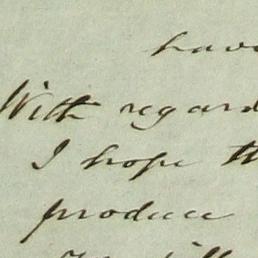 have
With regard
I hope th
produce